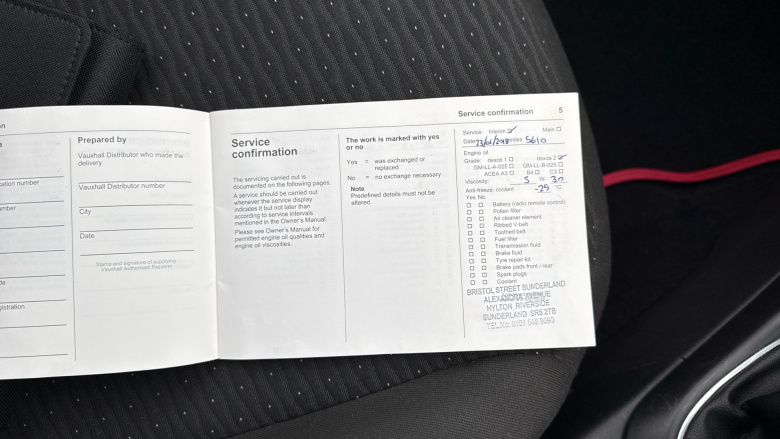 Prepared by
Vauxhall Distributor who made the
delivery
ication number
Vauxhall Distributor number
City
Date
Stamp and signature of supplying
Vauxhall Authorised Repairer
gistration
Service confirmation 5
Service
confirmation
The servicing carried out is
documented on the following pages.
A service should be carried out
whenever the service display
indicates it but not later than
according to service intervals
mentioned in the Owner's Manual.
Please see Owner's Manual for
permitted engine oil qualities and
engine oil viscosities.
The work is marked with yes
or no
Yes = was exchanged or
replaced
No = no exchange necessary
Note
Predefined details must not be
altered.
Service: Interim Main
Date 23/01/2018 miles 5610
Engine oil
Grade: dexos 1 dexos 2
GM-LL-A-025 GM-LL-B-025
ACEA A3 B4 C3
Viscosity: 5 W- 30
Anti-freeze, coolant -29 °C
Yes No
Battery (radio remote control)
Pollen filter
Air cleaner element
Ribbed V-belt
Toothed belt
Fuel filter
Transmission fluid
Brake fluid
Tyre repair kit
Brake pads front / rear
Spark plugs
Coolant
BRISTOL STREET SUNDERLAND
ALEXANDRA AVENUE
HYLTON RIVERSIDE
SUNDERLAND SR5 2TB
TEL No: 0191 549 9090